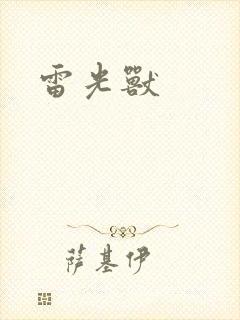 雷光獸
萨基伊